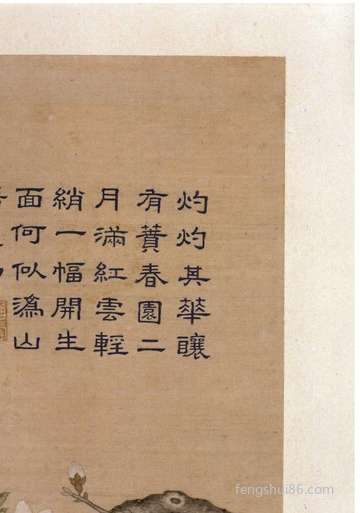 灼灼其華釀
有蕡春園二
月滿紅雲輕
綃一幅開生
面何似溈山
fengshui86.com